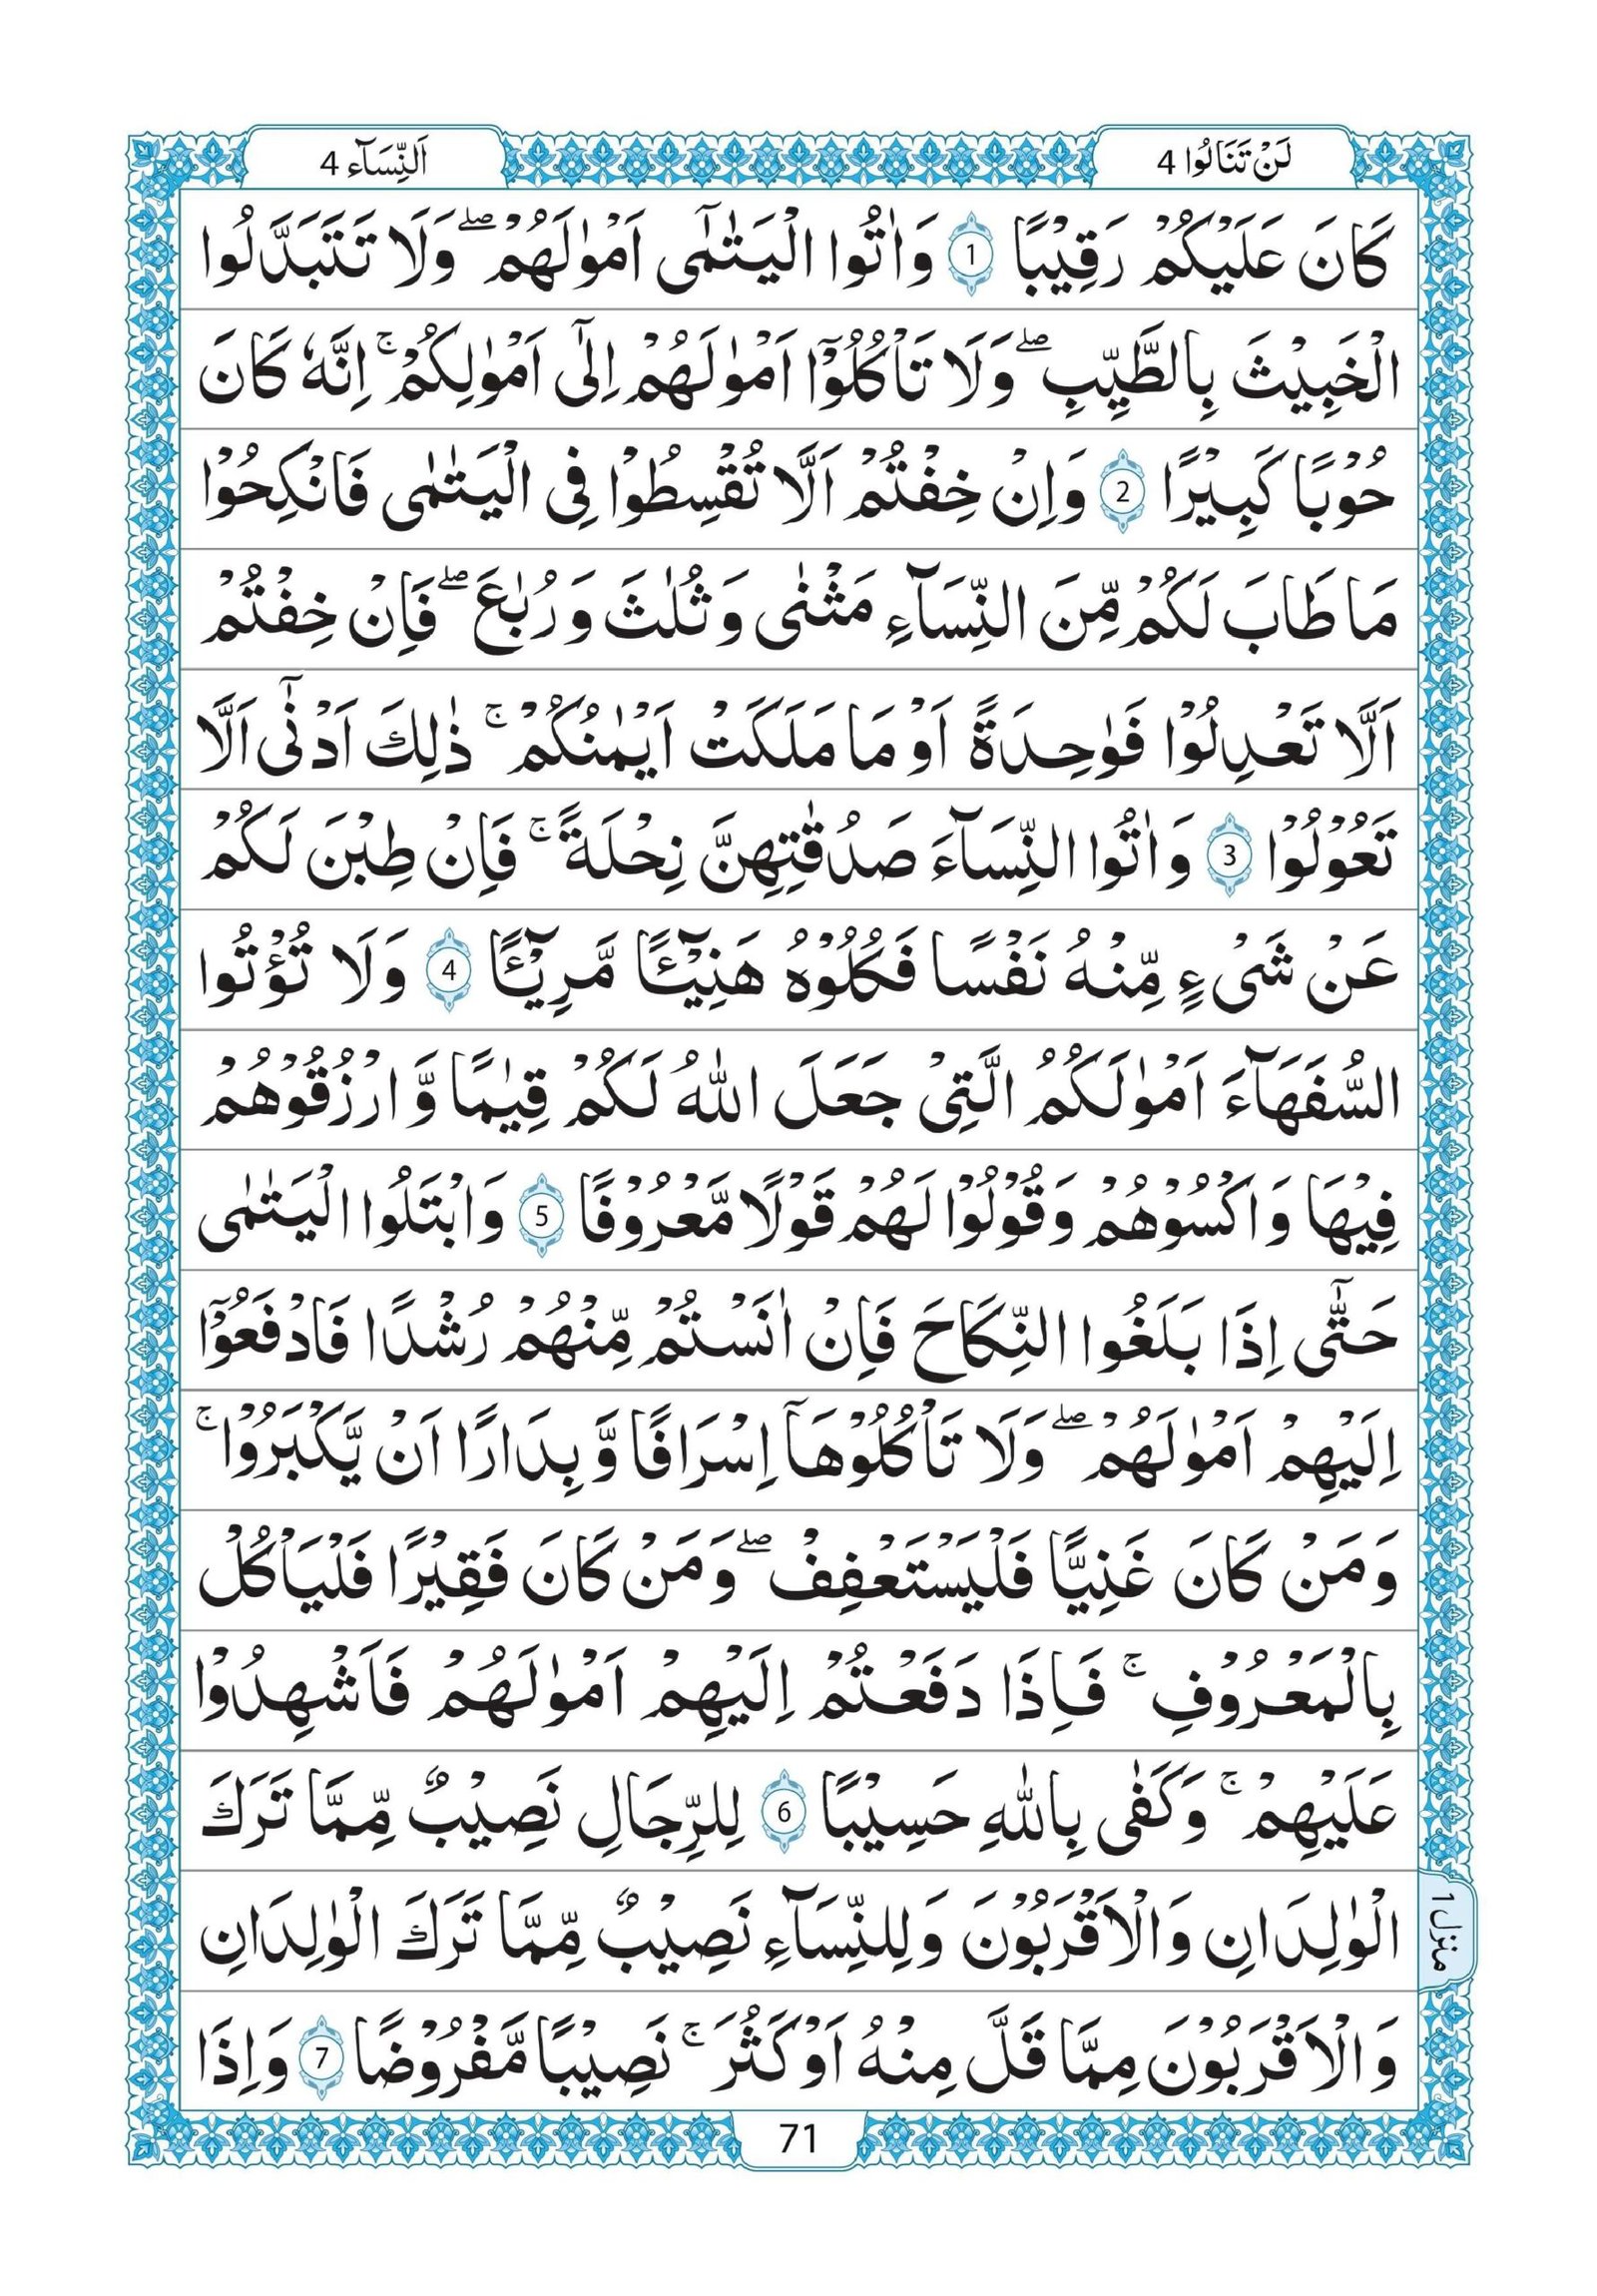 لَنْ تَنَالُوا 4
اَلنِّسَآء 4
كَانَ عَلَيْكُمْ رَقِيْبًا 1 وَاٰتُوا الْيَتٰمٰٓى اَمْوٰلَهُمْ ۖ وَلَا تَتَبَدَّلُوا
الْخَبِيْثَ بِالطَّيِّبِ ۖ وَلَا تَاْكُلُوْٓا اَمْوٰلَهُمْ اِلٰٓى اَمْوٰلِكُمْ ۚ اِنَّهٗ كَانَ
حُوْبًا كَبِيْرًا 2 وَاِنْ خِفْتُمْ اَلَّا تُقْسِطُوْا فِى الْيَتٰمٰى فَانْكِحُوْا
مَا طَابَ لَكُمْ مِّنَ النِّسَآءِ مَثْنٰى وَثُلٰثَ وَرُبٰعَ ۖ فَاِنْ خِفْتُمْ
اَلَّا تَعْدِلُوْا فَوٰحِدَةً اَوْ مَا مَلَكَتْ اَيْمٰنُكُمْ ۚ ذٰلِكَ اَدْنٰٓى اَلَّا
تَعُوْلُوْا 3 وَاٰتُوا النِّسَآءَ صَدُقٰتِهِنَّ نِحْلَةً ۚ فَاِنْ طِبْنَ لَكُمْ
عَنْ شَىْءٍ مِّنْهُ نَفْسًا فَكُلُوْهُ هَنِيْٓـًٔا مَّرِيْٓـًٔا 4 وَلَا تُؤْتُوا
السُّفَهَآءَ اَمْوٰلَكُمُ الَّتِىْ جَعَلَ اللّٰهُ لَكُمْ قِيٰمًا وَّارْزُقُوْهُمْ
فِيْهَا وَاكْسُوْهُمْ وَقُوْلُوْا لَهُمْ قَوْلًا مَّعْرُوْفًا 5 وَابْتَلُوا الْيَتٰمٰى
حَتّٰٓى اِذَا بَلَغُوا النِّكَاحَ فَاِنْ اٰنَسْتُمْ مِّنْهُمْ رُشْدًا فَادْفَعُوْٓا
اِلَيْهِمْ اَمْوٰلَهُمْ ۖ وَلَا تَاْكُلُوْهَآ اِسْرَافًا وَّبِدَارًا اَنْ يَّكْبَرُوْا ۚ
وَمَنْ كَانَ غَنِيًّا فَلْيَسْتَعْفِفْ ۖ وَمَنْ كَانَ فَقِيْرًا فَلْيَاْكُلْ
بِالْمَعْرُوْفِ ۚ فَاِذَا دَفَعْتُمْ اِلَيْهِمْ اَمْوٰلَهُمْ فَاَشْهِدُوْا
عَلَيْهِمْ ۚ وَكَفٰى بِاللّٰهِ حَسِيْبًا 6 لِلرِّجَالِ نَصِيْبٌ مِّمَّا تَرَكَ
الْوٰلِدَانِ وَالْاَقْرَبُوْنَ وَلِلنِّسَآءِ نَصِيْبٌ مِّمَّا تَرَكَ الْوٰلِدَانِ
منزل 1
وَالْاَقْرَبُوْنَ مِمَّا قَلَّ مِنْهُ اَوْ كَثُرَ ۚ نَصِيْبًا مَّفْرُوْضًا 7 وَاِذَا
71